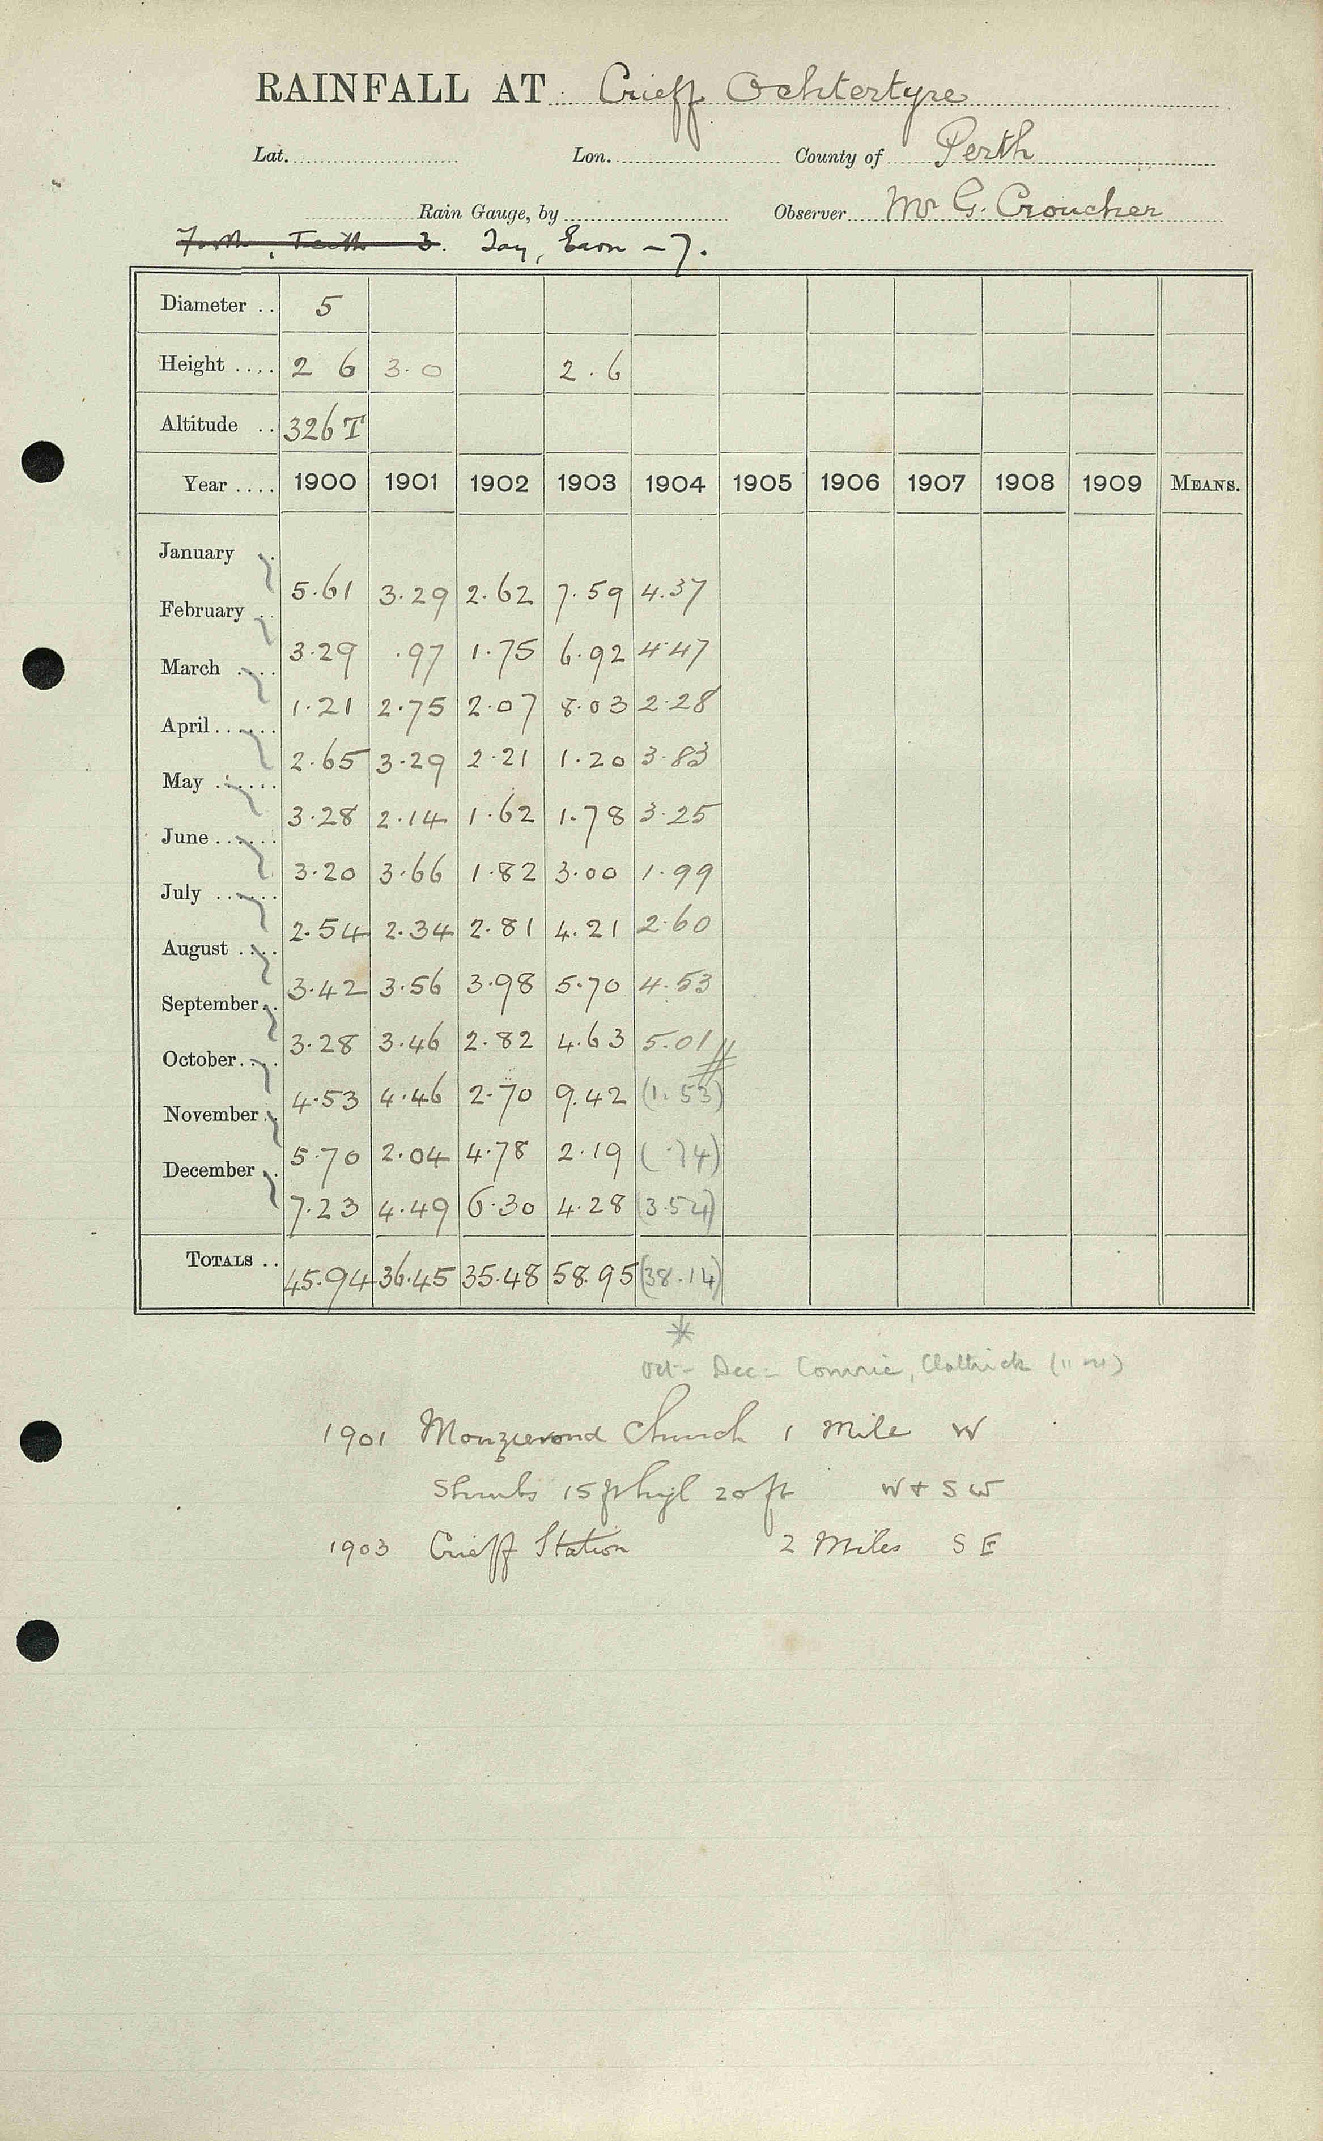 RAINFALL AT Crieff Ochtertyre
Lat. Lon. County of Perth
Rain Gauge, by Observer Mr G. Croucher
Forth, Teith 3. Tay, Earn - 7.
Diameter .. 5
Height .... 2 6 3.0 2.6
Altitude .. 326 T
Year .... 1900 1901 1902 1903 1904 1905 1906 1907 1908 1909 MEANS.
January
5.61 3.29 2.62 7.59 4.37
February
3.29 .97 1.75 6.92 4.47
March
1.21 2.75 2.07 8.03 2.28
April
2.65 3.29 2.21 1.20 3.83
May
3.28 2.14 1.62 1.78 3.25
June
3.20 3.66 1.82 3.00 1.99
July
2.54 2.34 2.81 4.21 2.60
August
3.42 3.56 3.98 5.70 4.53
September
3.28 3.46 2.82 4.63 5.01
October
4.53 4.46 2.70 9.42 (1.53)
November
5.70 2.04 4.78 2.19 (.74)
December
7.23 4.49 6.30 4.28 (3.54)
TOTALS .. 45.94 36.45 35.48 58.95 (38.14)
*
Oct - Dec = Comrie, Clathick
1901 Monzievond Church 1 Mile W
Shrubs 15 ft high 20 ft W + SW
1903 Crieff Station 2 Miles S E